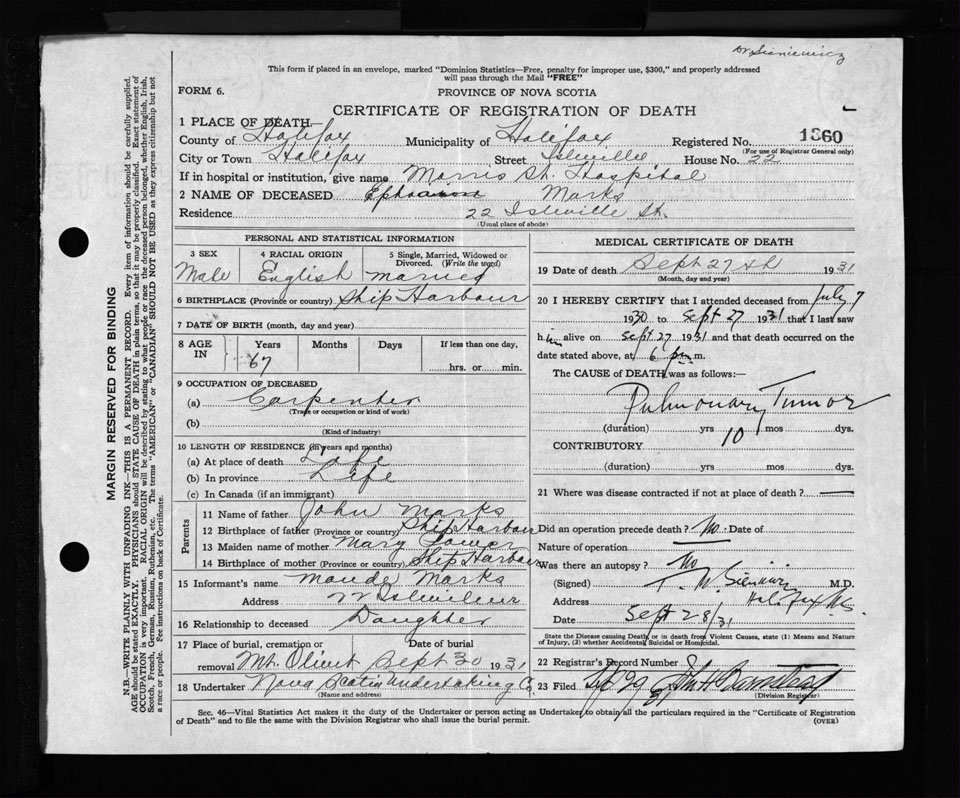 Dr Sieniewicz
This form if placed in an envelope, marked "Dominion Statistics—Free, penalty for improper use, $300," and properly addressed
will pass through the Mail "FREE"
FORM 6.
PROVINCE OF NOVA SCOTIA
CERTIFICATE OF REGISTRATION OF DEATH
1 PLACE OF DEATH
County of Halifax Municipality of Halifax Registered No. 1360
(For use of Registrar General only)
City or Town Halifax Street Isleville House No. 22
If in hospital or institution, give name Morris St. Hospital
2 NAME OF DECEASED Ephraim Marks
Residence 22 Isleville St.
(Usual place of abode)
PERSONAL AND STATISTICAL INFORMATION
3 SEX 4 RACIAL ORIGIN 5 Single, Married, Widowed or
Divorced. (Write the word)
Male English Married
6 BIRTHPLACE (Province or country) Ship Harbour
7 DATE OF BIRTH (month, day and year)
8 AGE IN Years Months Days If less than one day,
67 hrs. or min.
9 OCCUPATION OF DECEASED
(a) Carpenter
(Trade or occupation or kind of work)
(b)
(Kind of industry)
10 LENGTH OF RESIDENCE (in years and months)
(a) At place of death Life
(b) In province Life
(c) In Canada (if an immigrant)
Parents
11 Name of father John Marks
12 Birthplace of father (Province or country) Ship Harbour
13 Maiden name of mother Mary
14 Birthplace of mother (Province or country) Ship Harbour
15 Informant's name Maude Marks
Address 22
16 Relationship to deceased Daughter
17 Place of burial, cremation or Date of burial
removal Mt. Olivet Sept 30 1931
18 Undertaker Nova Scotia Undertaking Co
(Name and address)
MEDICAL CERTIFICATE OF DEATH
19 Date of death Sept 27th 1931
(Month, day and year)
20 I HEREBY CERTIFY that I attended deceased from July 7
1930 to Sept 27 1931 that I last saw
him alive on Sept 27 1931 and that death occurred on the
date stated above, at 6 pm m.
The CAUSE of DEATH was as follows:—
Pulmonary Tumor
(duration) yrs 10 mos dys.
CONTRIBUTORY
(duration) yrs mos dys.
21 Where was disease contracted if not at place of death? —
Did an operation precede death? No. Date of
Nature of operation —
Was there an autopsy? No
(Signed) M.D.
Address Halifax NS
Date Sept 28/31
State the Disease causing Death, or in death from Violent Causes, state (1) Means and Nature
of Injury, (2) whether Accidental, Suicidal or Homicidal.
22 Registrar's Record Number
23 Filed
(Division Registrar)
Sec. 46—Vital Statistics Act makes it the duty of the Undertaker or person acting as Undertaker to obtain all the particulars required in the "Certificate of Registration
of Death" and to file the same with the Division Registrar who shall issue the burial permit.
(OVER)
MARGIN RESERVED FOR BINDING
N.B.—WRITE PLAINLY WITH UNFADING INK—THIS IS A PERMANENT RECORD. Every item of information should be carefully supplied.
AGE should be stated EXACTLY. PHYSICIANS should STATE CAUSE OF DEATH in plain terms, so that it may be properly classified. Exact statement of
OCCUPATION is very important. RACIAL ORIGIN will be described by stating to what people or race the deceased person belonged, whether English, Irish,
Scotch, French, German, Russian, Ruthenian, etc. The terms "AMERICAN" or "CANADIAN" SHOULD NOT BE USED as they express citizenship but not
a race or people. See instructions on back of Certificate.